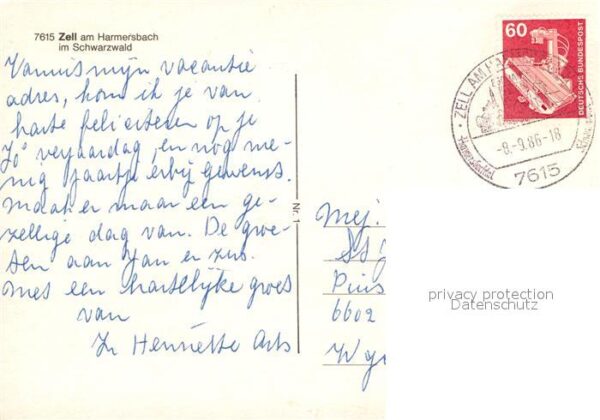 7615 Zell am Harmersbach
im Schwarzwald
Vannuit mijn vacantie
adres, kom ik je van
harte feliciteren op je
verjaardag, en nog me-
nig jaartje erbij gewenst.
Maak er maar een ge-
zellige dag van. De groe-
ten aan Jan er zus.
met een hartelijke groet
van
Zr Henriëtte Arts
Nr. 1
60
DEUTSCHE BUNDESPOST
ZELL AM HARMERSBACH
-8.-9.86-18
7615
Mej.
Pius
6602
privacy protection
Datenschutz